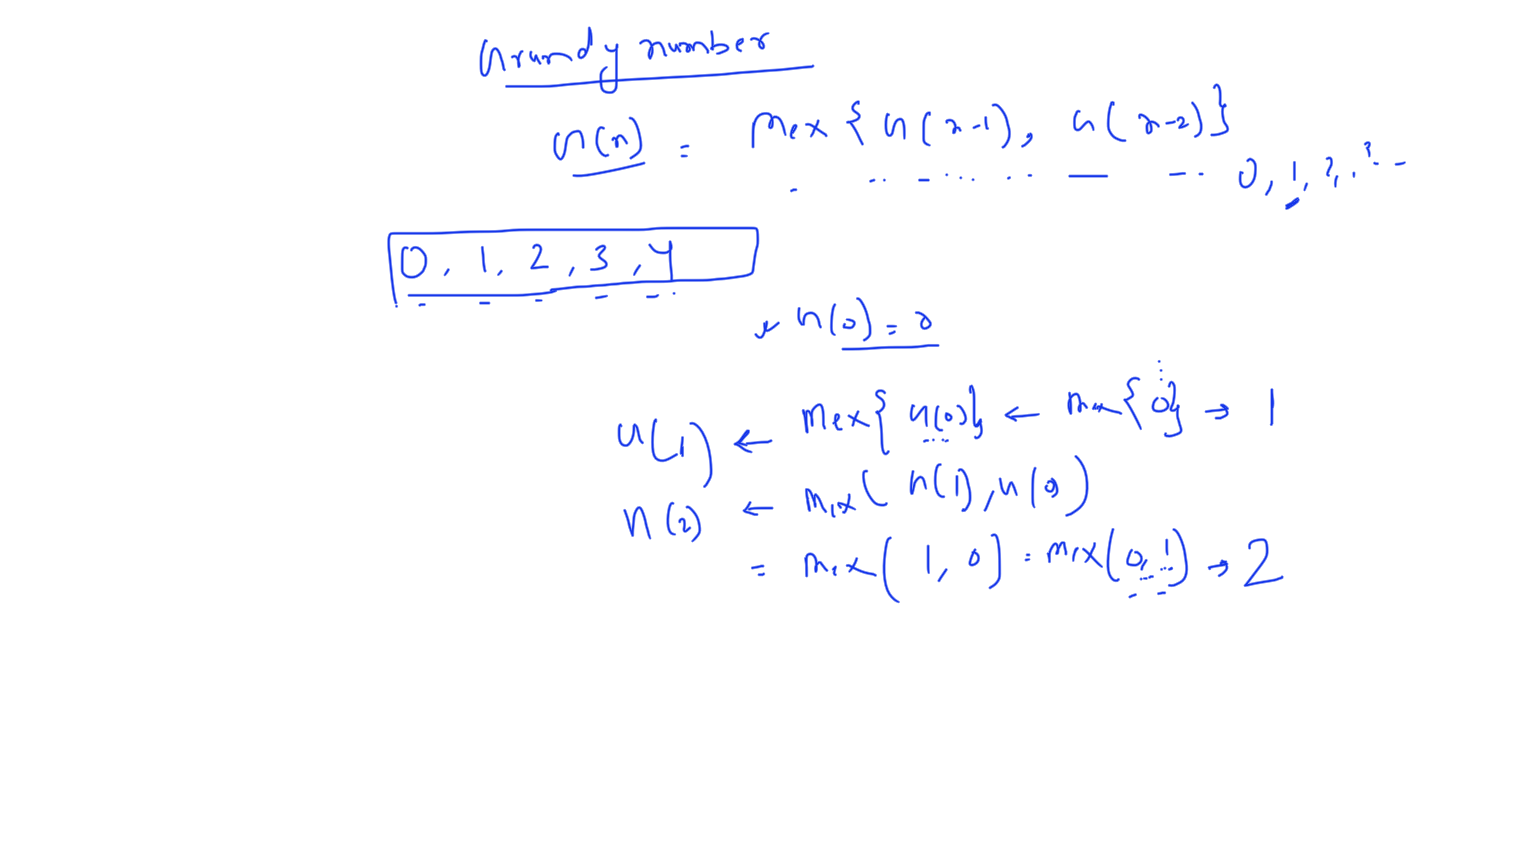 Grundy number
G(n) = Mex { G(n-1), G(n-2)}
0, 1, ?, . ? - -
0, 1, 2, 3, 4
G(0) = 0
G(1) ← Mex{ G(0)} ← Mex{ 0} → 1
G(2) ← Mex( G(1), G(0)
= Mex( 1, 0) = Mex(0, 1) → 2